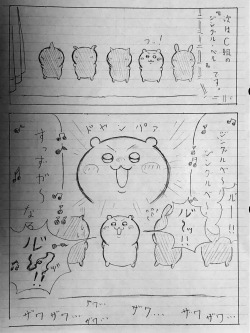 次はC組の
"ジングルベル"
です。
っ…!
ドヤンパァ
ジングルベ〜ル
ジングルベ〜
ル〜ッ!!
すっずが〜
なぁ
ル〜!!
ザワ…
ザワ…
ザワ…
ザワ…
ザワ…
ザワ…